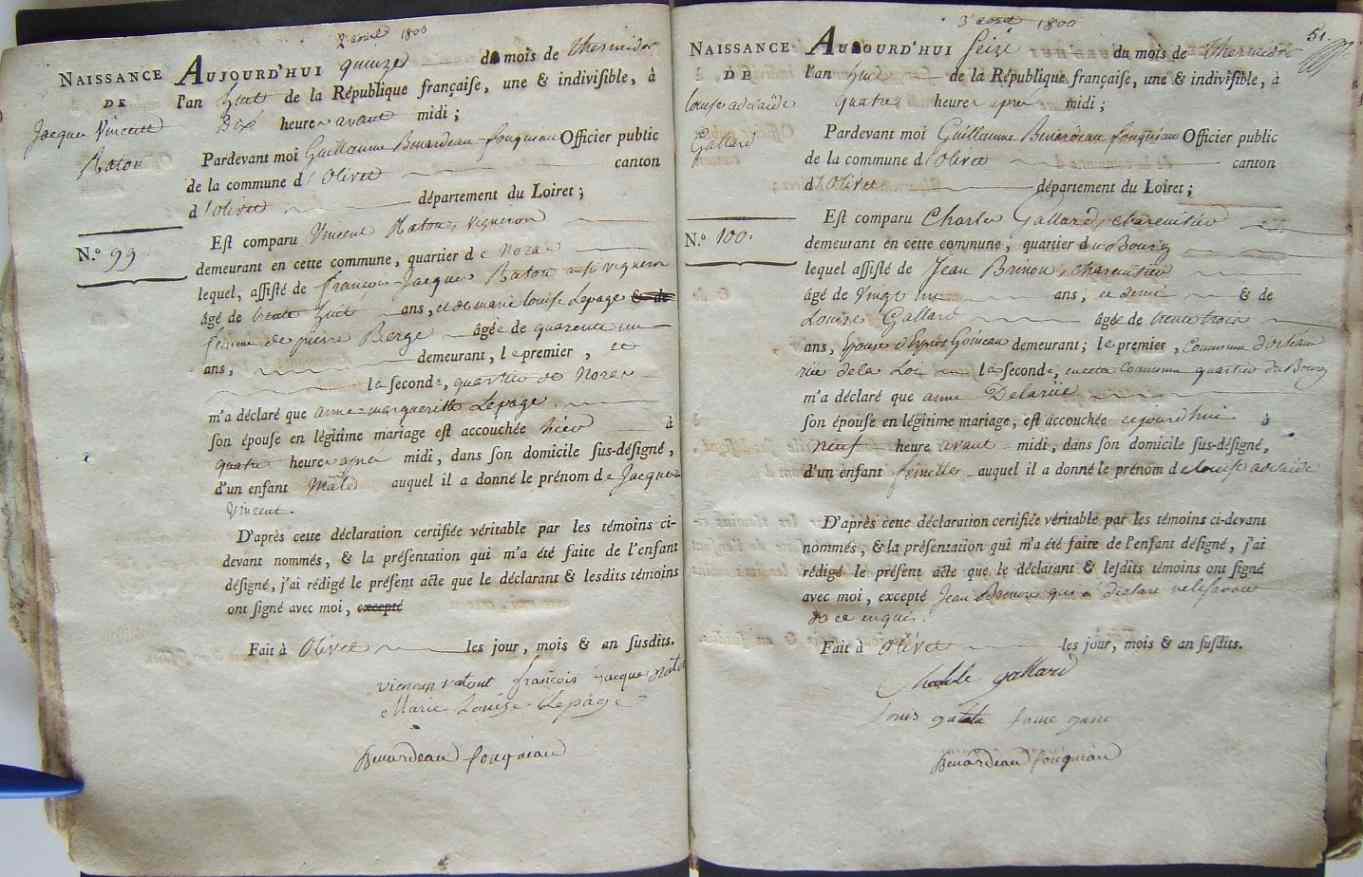 2 aout 1800
NAISSANCE
DE
Jacques Vincent
Raton
N.º 99
AUJOURD'HUI quinze du mois de thermidor
l'an huit de la République françaife, une & indivifible, à
Dix heures avant midi ;
Pardevant moi Guillaume Benardeau fouqueau Officier public
de la commune d'Olivet canton
d'Olivet département du Loiret ;
Eft comparu Vincent Raton, Vigneron
demeurant en cette commune, quartier de Noras
lequel, affifté de françois Jacques Raton vigneron
âgé de trente huit ans, et de marie louise Lepage & de
femme de pierre Berge âgée de quarente un
ans, demeurant, le premier, et
la seconde, quartier de Noras
m'a déclaré que anne marguerite Lepage
fon époufe en légitime mariage eft accouchée hier à
quatre heures apres midi, dans fon domicile fus-défigné,
d'un enfant Mâle auquel il a donné le prénom de Jacques
Vincent.
D'après cette déclaration certifiée véritable par les témoins ci-
devant nommés, & la préfentation qui m'a été faite de l'enfant
défigné, j'ai rédigé le préfent acte que le déclarant & lefdits témoins
ont figné avec moi, excepté
Fait à Olivet les jour, mois & an fufdits.
ratout françois jacque
Marie Louise Lepage
Benardeau fouqueau
3 aout 1800
51.
NAISSANCE
DE
louise adelaïde
Gallard
N.º 100.
AUJOURD'HUI seize du mois de thermidor
l'an huit de la République françaife, une & indivifible, à
quatre heures apres midi ;
Pardevant moi Guillaume Benardeau fouqueau Officier public
de la commune d'Olivet canton
d'Olivet département du Loiret ;
Eft comparu Charles Gallard, charcutier
demeurant en cette commune, quartier du Bourg
lequel affifté de Jean charcutier
âgé de Vingt ans, et demi & de
Louise Gallard âgée de trente trois
ans, Epouse demeurant ; le premier, Commune d'orleans
rue de la la seconde, en cette Commune quartier du Bourg
m'a déclaré que anne Delarüe
fon époufe en légitime mariage, eft accouchée cejourdhui à
neuf heure avant midi, dans fon domicile fus-défigné,
d'un enfant femelle auquel il a donné le prénom de louise adelaïde
D'après cette déclaration certifiée véritable par les témoins ci-devant
nommés, & la préfentation qui m'a été faite de l'enfant défigné, j'ai
rédigé le préfent acte que le déclarant & lefdits témoins ont figné
avec moi, excepté Jean qui a déclaré ne le savoir
de ce enquis.
Fait à Olivet les jour, mois & an fufdits.
gallard
Benardeau fouqueau